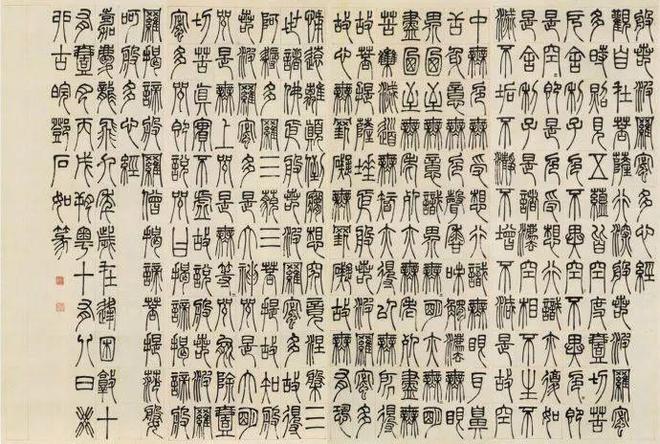 般若波羅蜜多心經
觀自在菩薩行深般若波羅蜜
多時照見五蘊皆空度壹切苦
厄舍利子色不異空空不異色色即
是空空即是色受想行識亦復如
是舍利子是諸法空相不生不
滅不垢不淨不增不減是故空
中無色無受想行識無眼耳鼻
舌身意無色聲香味觸法無眼
界乃至無意識界無無明亦無無明
盡乃至無老死亦無老死盡無
苦集滅道無智亦無得以無所得
故菩提薩埵依般若波羅蜜多
故心無罣礙無罣礙故無有恐
怖遠離顛倒夢想究竟涅槃三
世諸佛依般若波羅蜜多故得
阿耨多羅三藐三菩提故知般
若波羅蜜多是大神呪是大明
呪是無上呪是無等等呪能除壹
切苦真實不虛故說般若波羅
蜜多呪即說呪曰揭諦揭諦般
羅揭諦般羅僧揭諦菩提莎婆
呵般多心經
嘉慶龍飛九年歲在逢困敦十
有壹月丙戌朔粵十有八日
古皖鄧石如篆